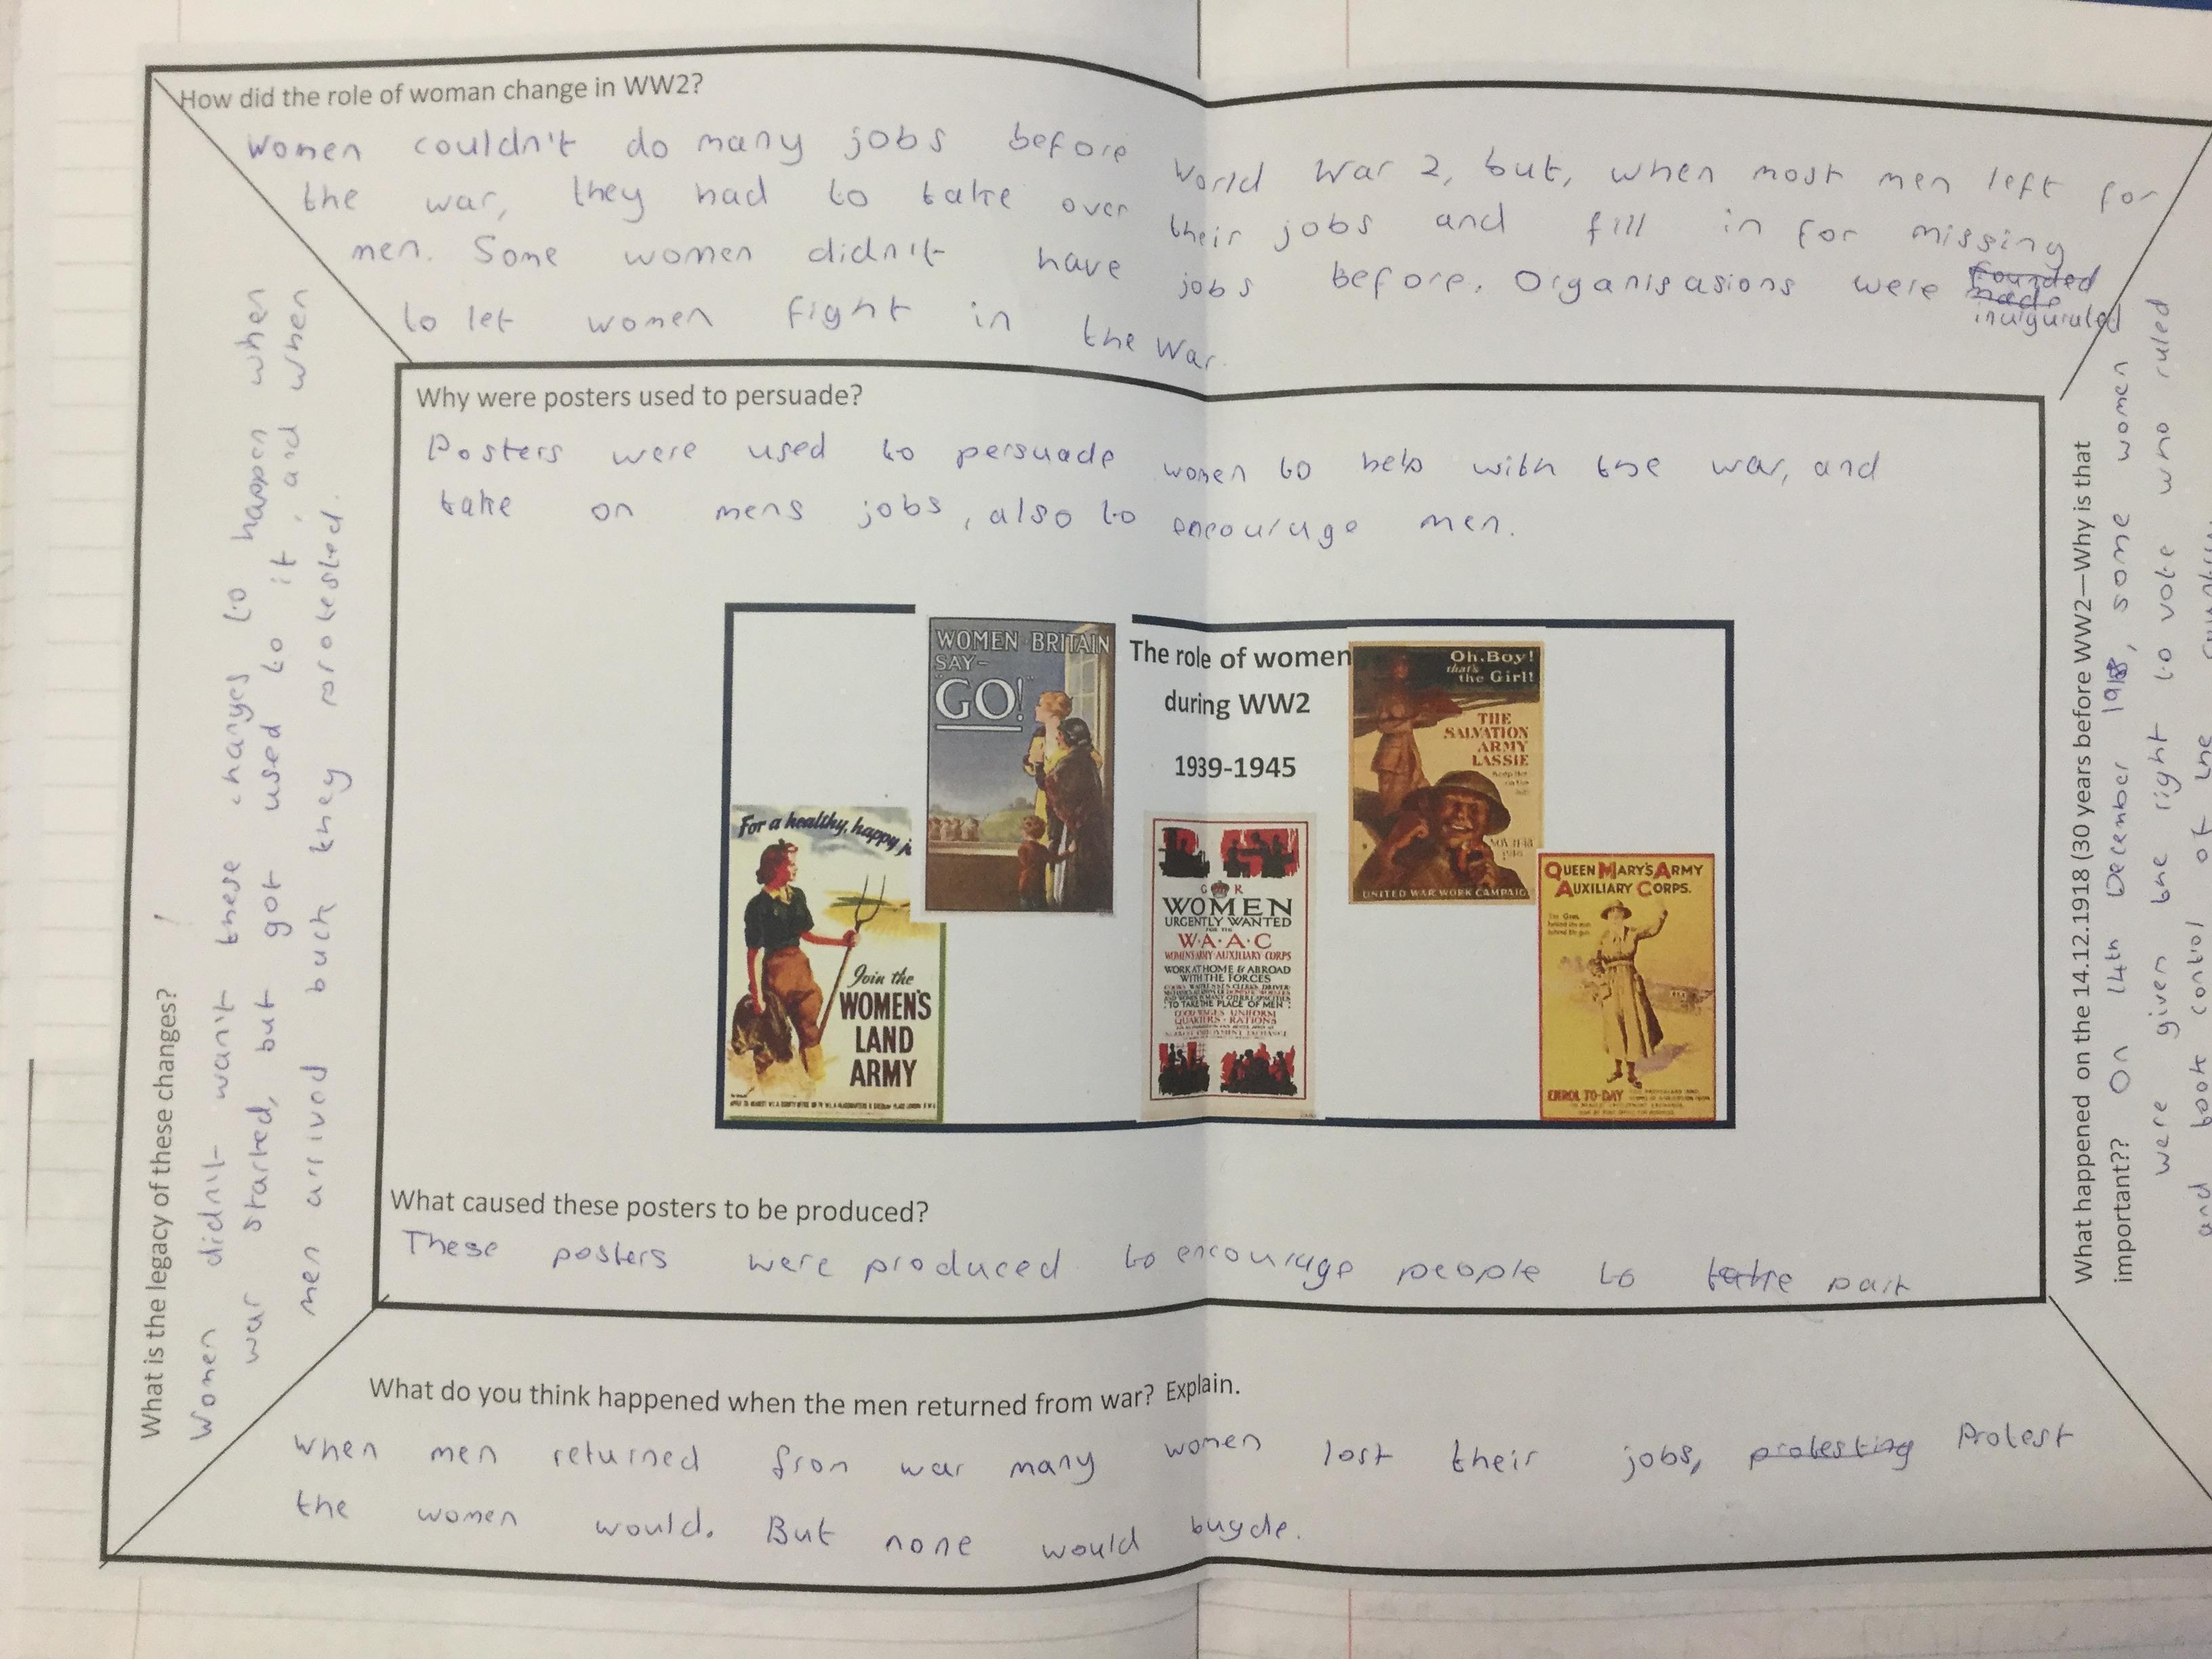 How did the role of woman change in WW2?
Women couldn't do many jobs before World War 2, but, when most men left for
the war, they had to take over their jobs and fill in for missing
men. Some women didn't have jobs before. Organisasions were founded
made
inuigurated
to let women fight in the War.
Why were posters used to persuade?
Posters were used to persuade women to help with the war, and
take on mens jobs, also to encourage men.
WOMEN BRITAIN
SAY-
"GO!"
The role of women
during WW2
1939-1945
Oh, Boy!
that's
the Girl!
THE
SALVATION
ARMY
LASSIE
UNITED WAR WORK CAMPAIG
For a healthy, happy j
Join the
WOMEN'S
LAND
ARMY
G R
WOMEN
URGENTLY WANTED
FOR THE
W·A·A·C
WOMEN'S ARMY AUXILIARY CORPS
WORK AT HOME & ABROAD
WITH THE FORCES
TO TAKE THE PLACE OF MEN
GOOD WAGES UNIFORM
QUARTERS · RATIONS
QUEEN MARY'S ARMY
AUXILIARY CORPS.
The Girl
behind the man
behind the gun.
ENROL TO-DAY
What caused these posters to be produced?
These posters were produced to encourage people to take part
What do you think happened when the men returned from war? Explain.
When men returned from war many women lost their jobs, protesting Protest
the women would. But none would bugde.
What is the legacy of these changes?
Women didn't want these changes to happen when
war started, but got used to it, and when
men arrived back they protested.
What happened on the 14.12.1918 (30 years before WW2—Why is that
important?? On 14th December 1918, some women
were given the right to vote who ruled
and took control of the country